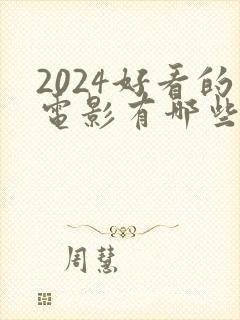 2024好看的
电影有哪些
周慧